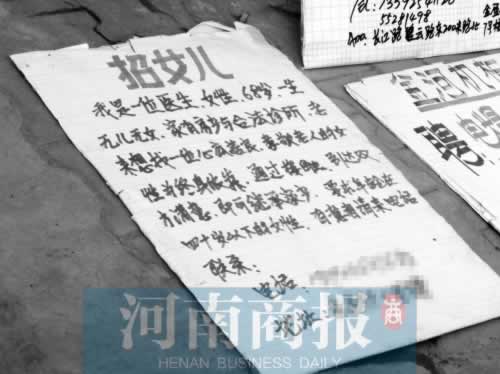 Tel:
55281498
长江路
招女儿
我是一位医生,女性,68岁一生
无儿无女,家有房产与合法诊所,老
来想找一位心底善良、孝敬老人的女
性为终身依靠,通过接触,到达双
方满意,即可继承家产,要求年龄在
四十岁以下的女性,有诚意请来电话
联系:
电话:
聘
河南商报 商
HENAN BUSINESS DAILY